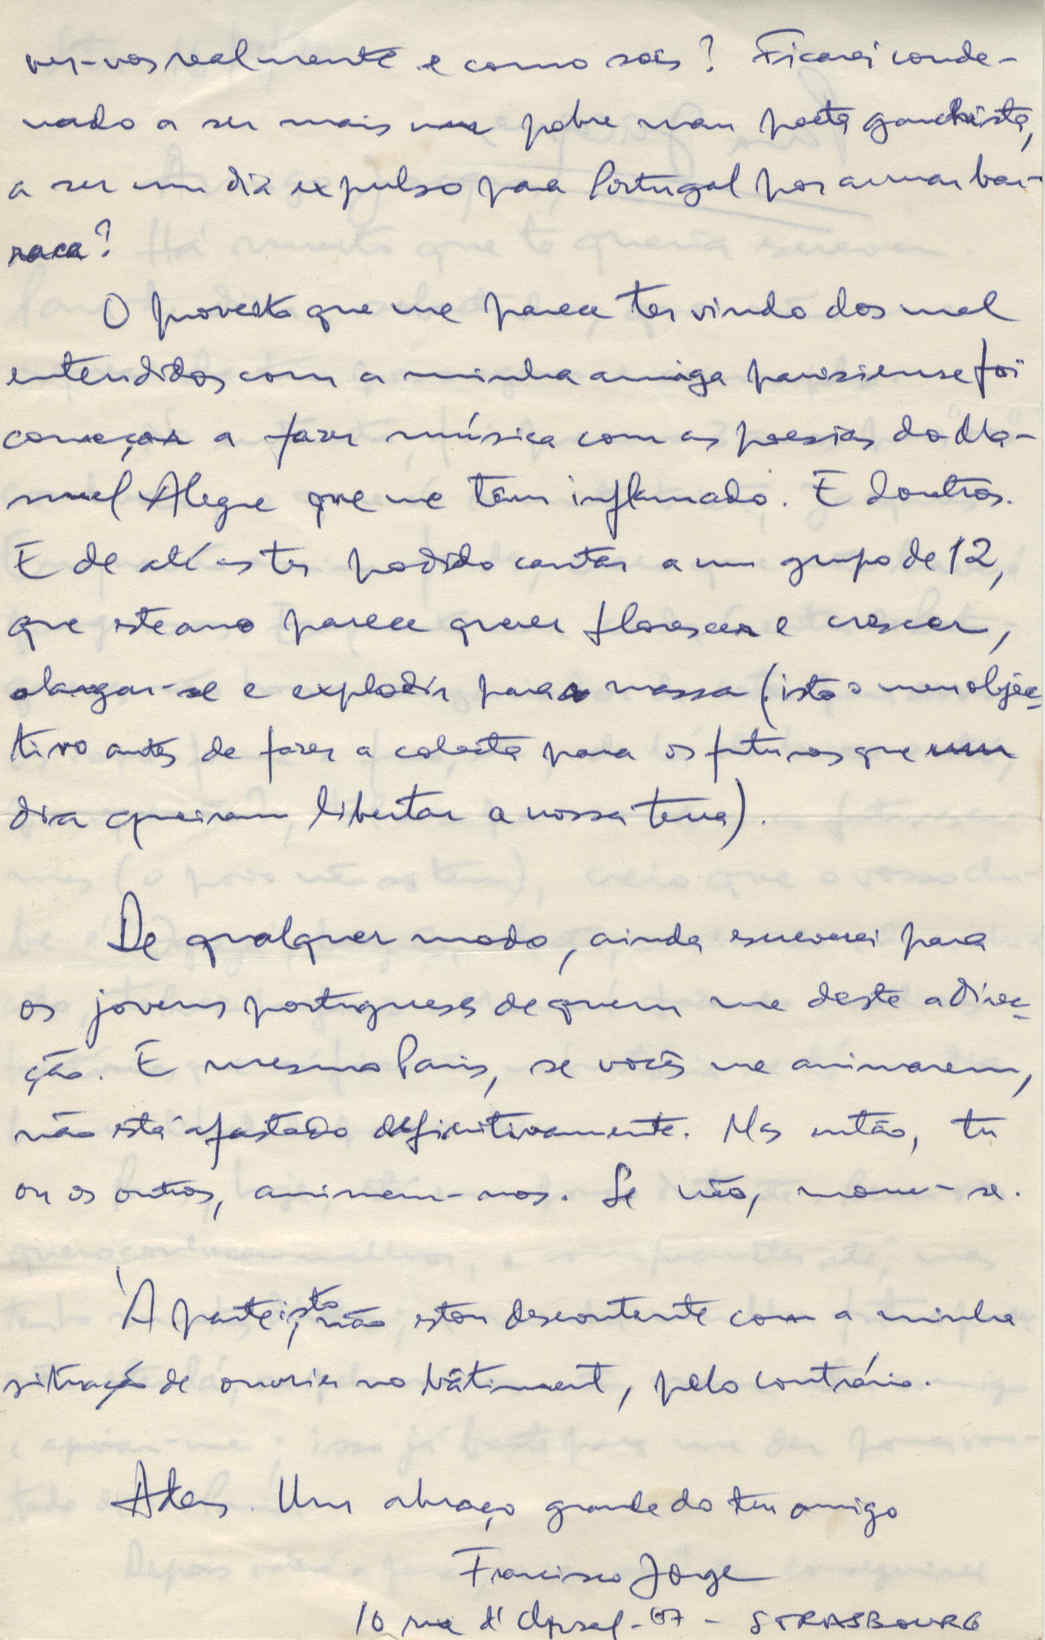 ver-vos realmente e como sois? Ficarei conde-
nado a ser mais um pobre mau poeta gauchista,
a ser um dia expulso para Portugal por armar bar-
raca?
O proveito que me parece ter vindo dos mal
entendidos com a minha amiga parisiense foi
começar a fazer música com as poesias do Ma-
nuel Alegre que me têm inflamado. E doutros.
E de até as ter podido cantar a um grupo de 12,
que este ano parece querer florescer e crescer,
alargar-se e explodir para a massa (isto o meu objec-
tivo antes de fazer a colecta para os futuros que um
dia queiram libertar a nossa terra).
De qualquer modo, ainda escreverei para
os jovens portugueses de quem me deste a direc-
ção. E mesmo Paris, se vocês me animarem,
não está afastado definitivamente. Mas então, tu
ou os outros, animem-nos. Se não, morre-se.
À parte isto, não estou descontente com a minha
situação de ouvrier no bâtiment, pelo contrário.
Adeus. Um abraço grande do teu amigo
Francisco Jorge
10 rue d' - 67 - STRASBOURG